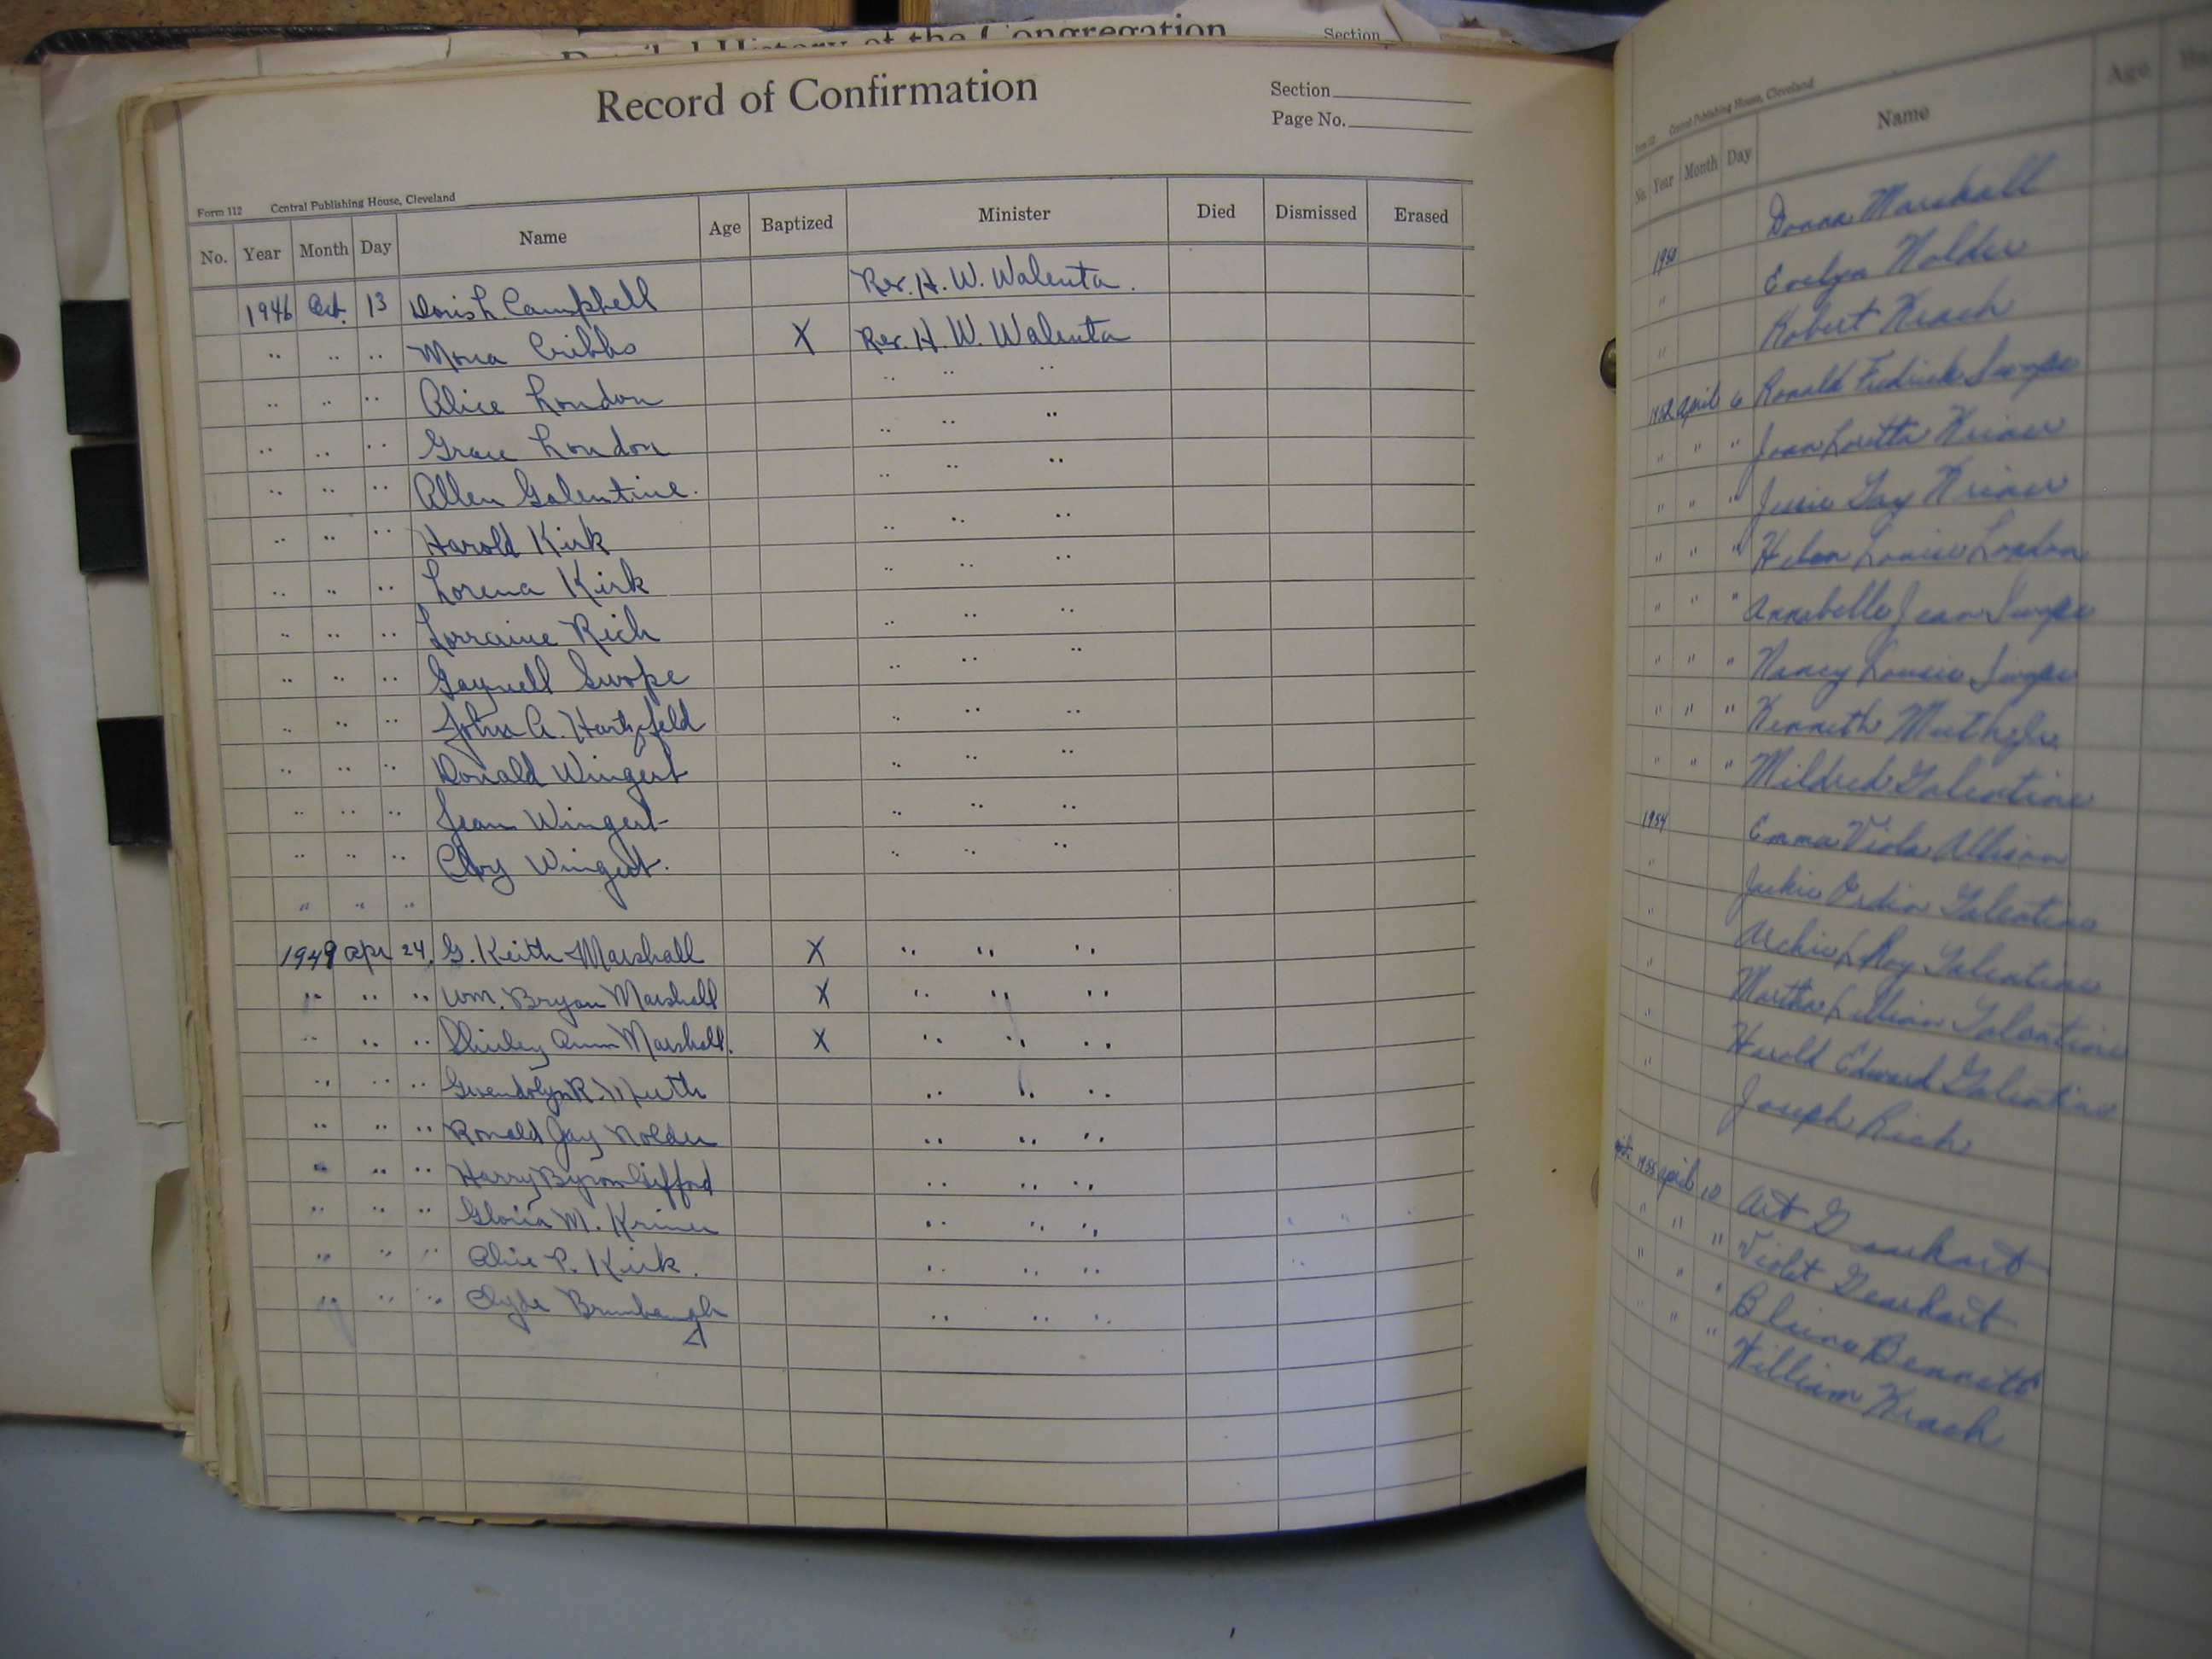 Detailed History of the Congregation Section
Record of Confirmation
Section
Page No.
Form 112 Central Publishing House, Cleveland
No. Year Month Day Name Age Baptized Minister Died Dismissed Erased
1946 Oct. 13 Doris L Campbell Rev. H. W. Walenta.
" " " Mona Cribbs X Rev. H. W. Walenta
" " " Alice London " " "
" " " Grace London " " "
" " " Allen Galentine. " " "
" " " Harold Kirk " " "
" " " Lorena Kirk " " "
" " " Lorraine Rich " " "
" " " Gaynell Swope " " "
" " " John A. Hartzfeld " " "
" " " Donald Wingert " " "
" " " Jean Wingert " " "
" " " Wingert. " " "
" " "
1949 Apr 24. G. Keith Marshall X " " "
" " " Wm. Bryan Marshall X " " "
" " " Shirley Ann Marshall. X " " "
" " " Gwendolyn R. Muth " " "
" " " Ronald Jay Nolder " " "
" " " Harry Byron Gifford " " "
" " " Gloria M. Kriner " " "
" " " Alice P. Kirk. " " "
" " " Clyde Brumbaugh " " "
Form 112 Central Publishing House, Cleveland
No. Year Month Day Name Age
1950 Donna Marshall
" Evelyn Nolder
" Robert Krach
1952 April 6 Ronald Fredrick Swope
" " " Joan Loretta Kriner
" " " Jessie Gay Kriner
" " " Helen Louise London
" " " Annabelle Jean Swope
" " " Nancy Lousie Swope
" " " Kenneth Muth Jr.
" " " Mildred Galentine
1954 Emma Viola Allison
" Jackie Galentine
" Archie LRoy Galentine
" Martha Lillian Galentine
" Harold Edward Galentine
" Joseph Rich
1955 April 10 Art Gearhart
" " " Violet Gearhart
" " " Blaine Bennett
" " " William Krach